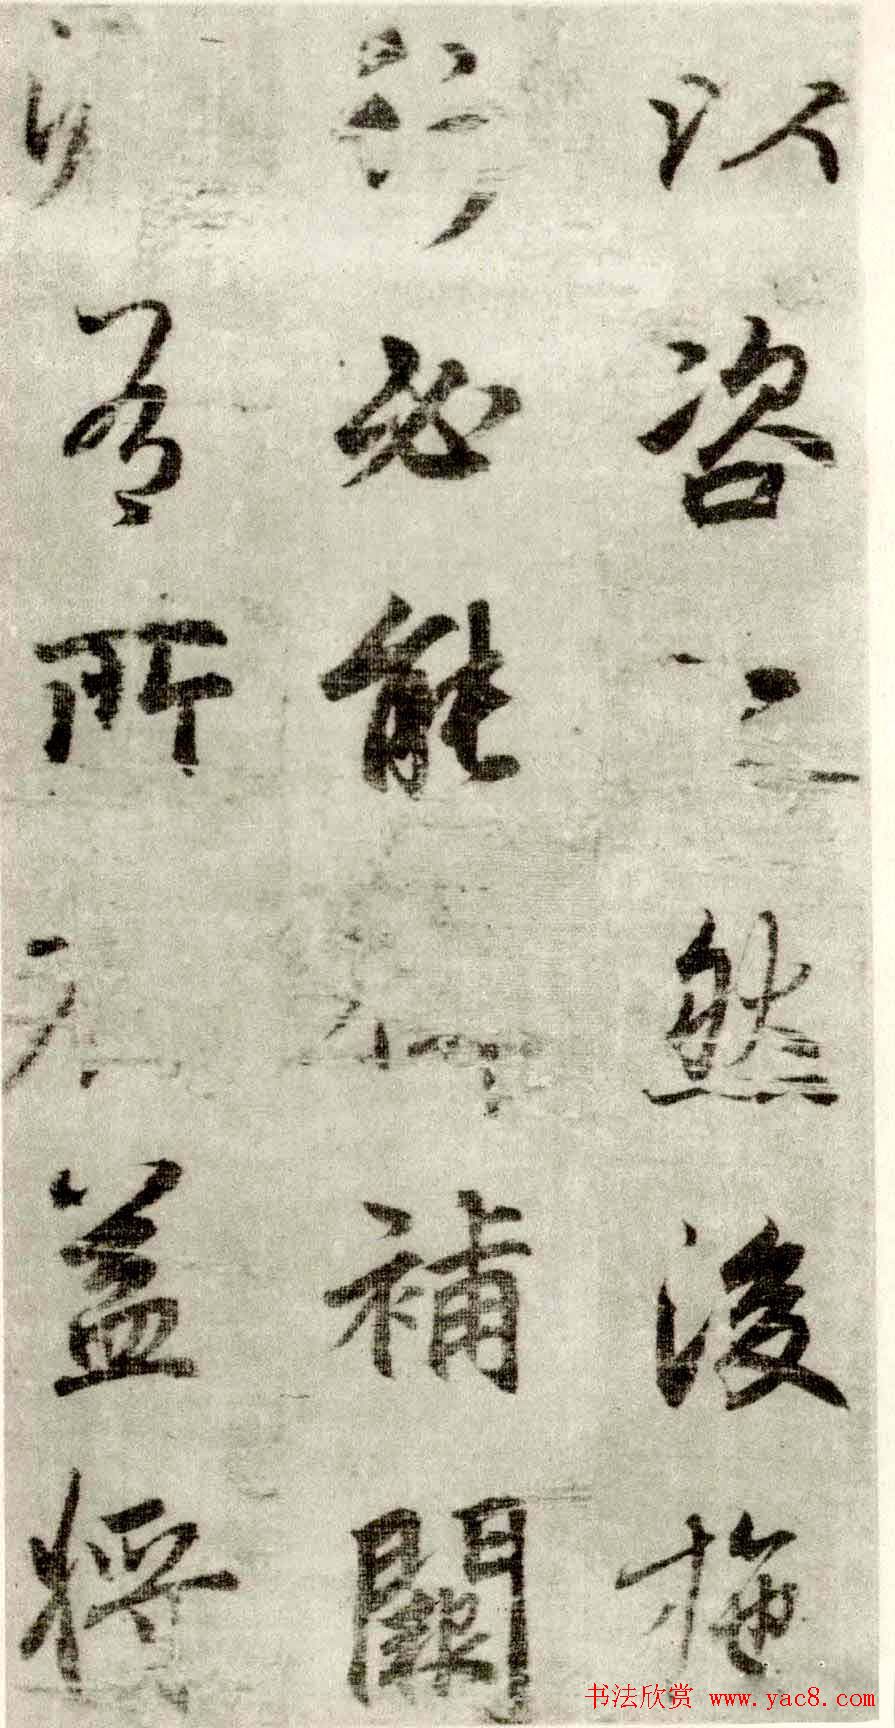 以咨之然後施
行必能裨補闕
漏有所廣益將
书法欣赏 www.yac8.com